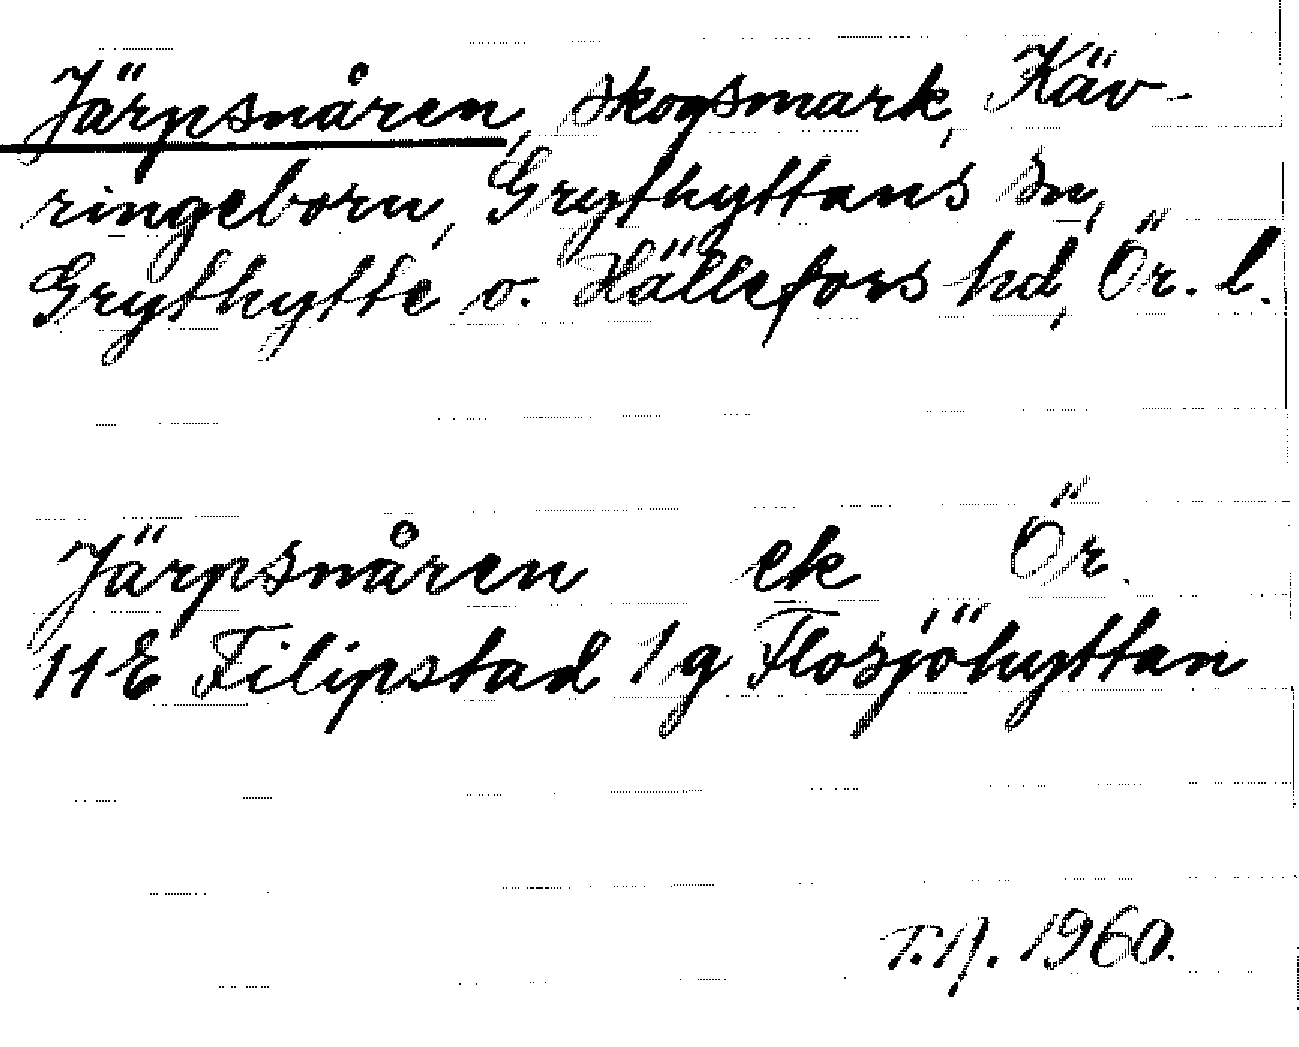 Järpsnåren, skogsmark, Käv-
ringeborn, Grythyttans sn,
Grythytte o. Hällefors hd, Ör. l.
Järpsnåren ek Ör.
11E Filipstad 1g Flosjöhyttan
1960.